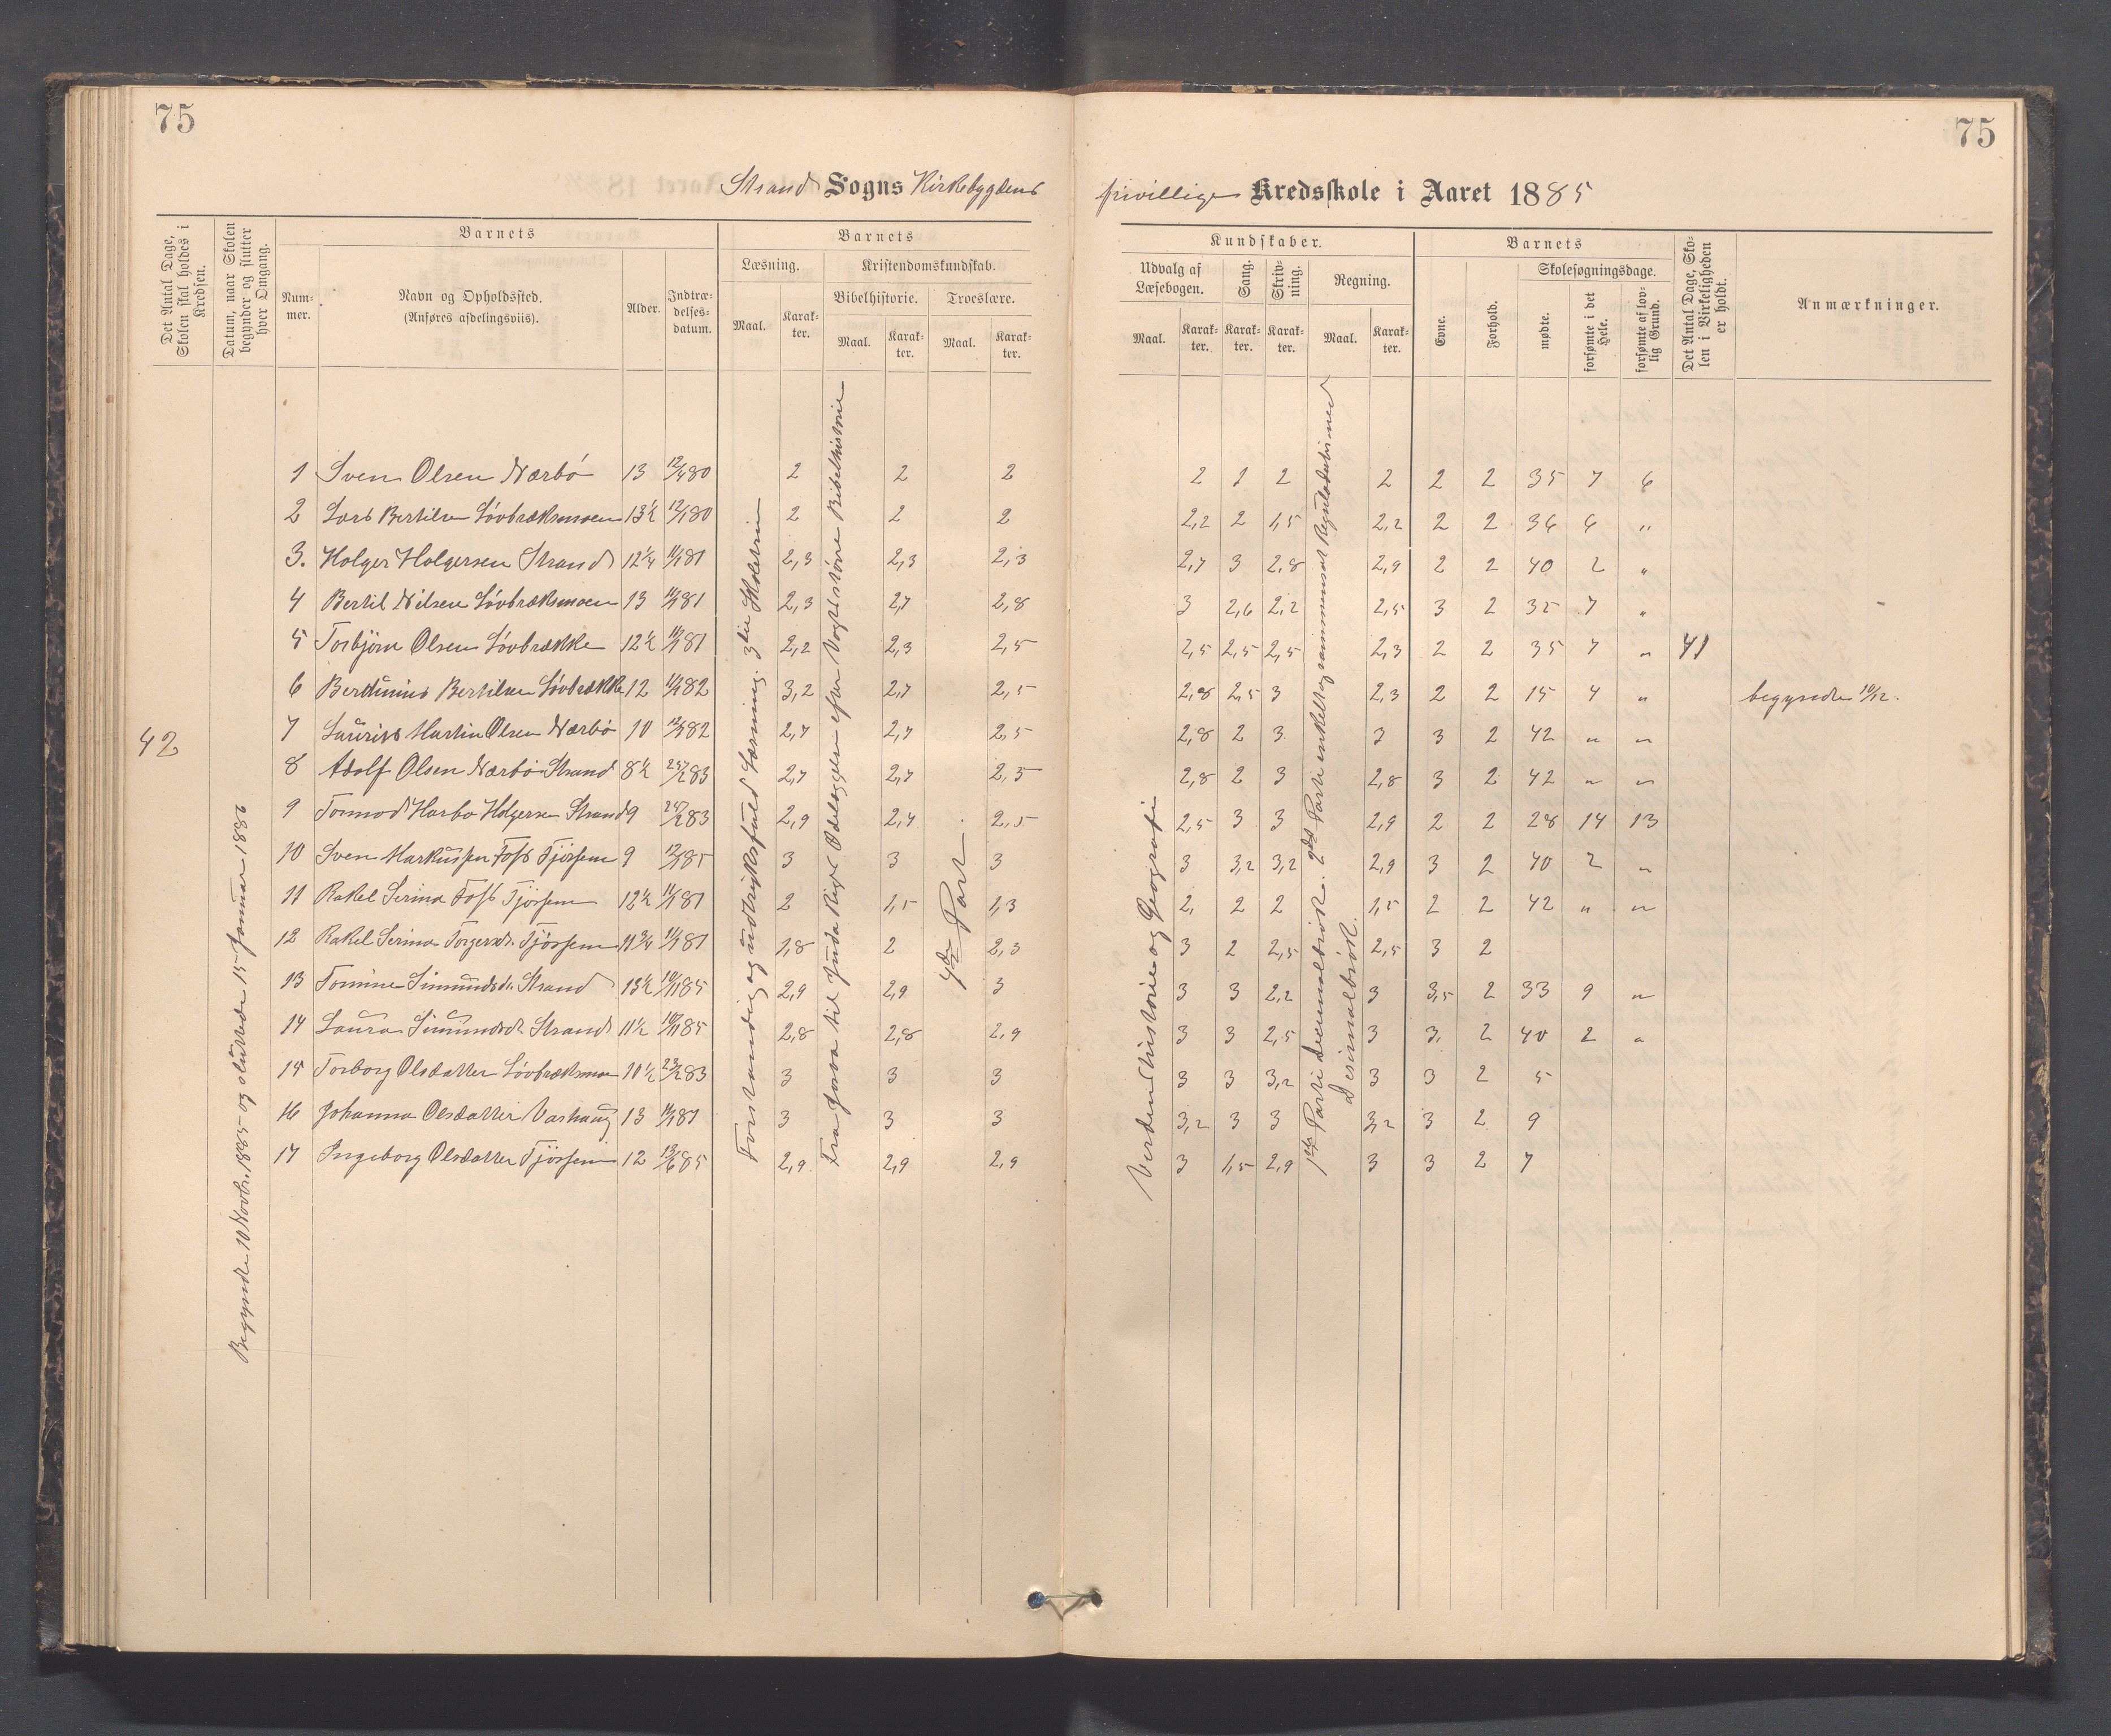 75
75
Strand Sogns Kirkebygdens
frivillige Kredsskole i Aaret 1885
Det Antal Dage, Skolen skal holdes i Kredsen.
Datum, naar Skolen begynder og slutter hver Omgang.
Barnets
Num-
mer.
Navn og Opholdssted.
(Anføres afdelingsviis).
Alder.
Indtræ-
delses-
datum.
Barnets
Læsning.
Kristendomskundskab.
Bibelhistorie.
Troeslære.
Maal.
Karak-
ter.
Maal.
Karak-
ter.
Maal.
Karak-
ter.
Kundskaber.
Udvalg af
Læsebogen.
Sang.
Skriv-
ning.
Regning.
Maal.
Karak-
ter.
Karak-
ter.
Karak-
ter.
Maal.
Karak-
ter.
Barnets
Evne.
Forhold.
Skolesøgningsdage.
mødte.
forsømte i det Hele.
forsømte af lov-
lig Grund.
Det Antal Dage, Sko-
len i Virkeligheden
er holdt.
Anmærkninger.
42
Begyndte 10 Novbr. 1885 og sluttede 15 Januar 1886
Forstandig og udtryksfuld Læsning. 3die Skoletrin
Fra Josva til Juda Riges Ødelæggelse efter Vogts større Bibelhistorie
4de Part.
Verdenshistorie og Geografi
1ste Parti Decimalbrøk. 2det Parti enkelt og sammensat Reguladetri med
Desimalbrøk.
1 Sven Olsen Nærbø 13 12/4 80 2 2 2 2 1 2 2 2 2 35 7 6
2 Lars Bertilsen Løvbræksmoen 13½ 12/1 80 2 2 2 2,2 2 1,5 2,2 2 2 36 6 "
3. Holger Holgersen Strand 12¼ 11/1 81 2,3 2,3 2,3 2,7 3 2,8 2,9 2 2 40 2 "
4 Bertil Nilsen Løvbræksmoen 13 11/1 81 2,3 2,7 2,8 3 2,6 2,2 2,5 3 2 35 7 "
5 Torbjørn Olsen Løvbrække 12½ 11/1 81 2,2 2,3 2,5 2,5 2,5 2,5 2,3 2 2 35 7 " 41
6 Bertunius Bertilsen Løvbrække 12 11/1 82 3,2 2,7 2,5 2,8 2,5 3 2,3 2 2 15 4 " begyndte 10/12.
7 Laurits Martin Olsen Nærbø 10 12/1 82 2,7 2,7 2,5 2,8 2 3 3 3 2 42 " "
8 Adolf Olsen Nærbø Strand 8½ 25/2 83 2,7 2,7 2,5 2,8 2 3 2,8 3 2 42 " "
9 Tormod Harbo Holgersen Strand 9 24/2 83 2,9 2,4 2,5 2,5 3 3 2,9 2 2 28 14 13
10 Sven Markussen Foss Tjøssem 9 12/1 85 3 3 3 3 3,2 3,2 2,9 3 2 40 2 "
11 Rakel Serina Foss Tjøssem 12½ 11/1 81 2 1,5 1,3 2, 2 2 1,5 2 2 42 " "
12 Rakel Serina Torgersdr. Tjøssem 11¾ 11/1 81 1,8 2 2,3 3 2 2,5 2,5 3 2
13 Tomine Simundsdr. Strand 13½ 10/11 85 2,9 2,9 3 3 3 2,2 3 3,5 2 33 9 "
14 Laura Simundsdr. Strand 11½ 10/11 85 2,8 2,8 2,9 3 3 2,5 3 3. 2 40 2 "
15 Torborg Olsdatter Løvbræksmoen 10½ 23/2 83 3 3 3 3 3 3,2 3 3 2 5
16 Johanna Olsdatter Varhaug 13 11/1 81 3 3 3 3,2 3 3 3,2 3 2 9
17 Ingeborg Olsdatter Tjøssem 12 13/6 85 2,9 2,9 2,9 3 1,5 2,9 3 3 2 7